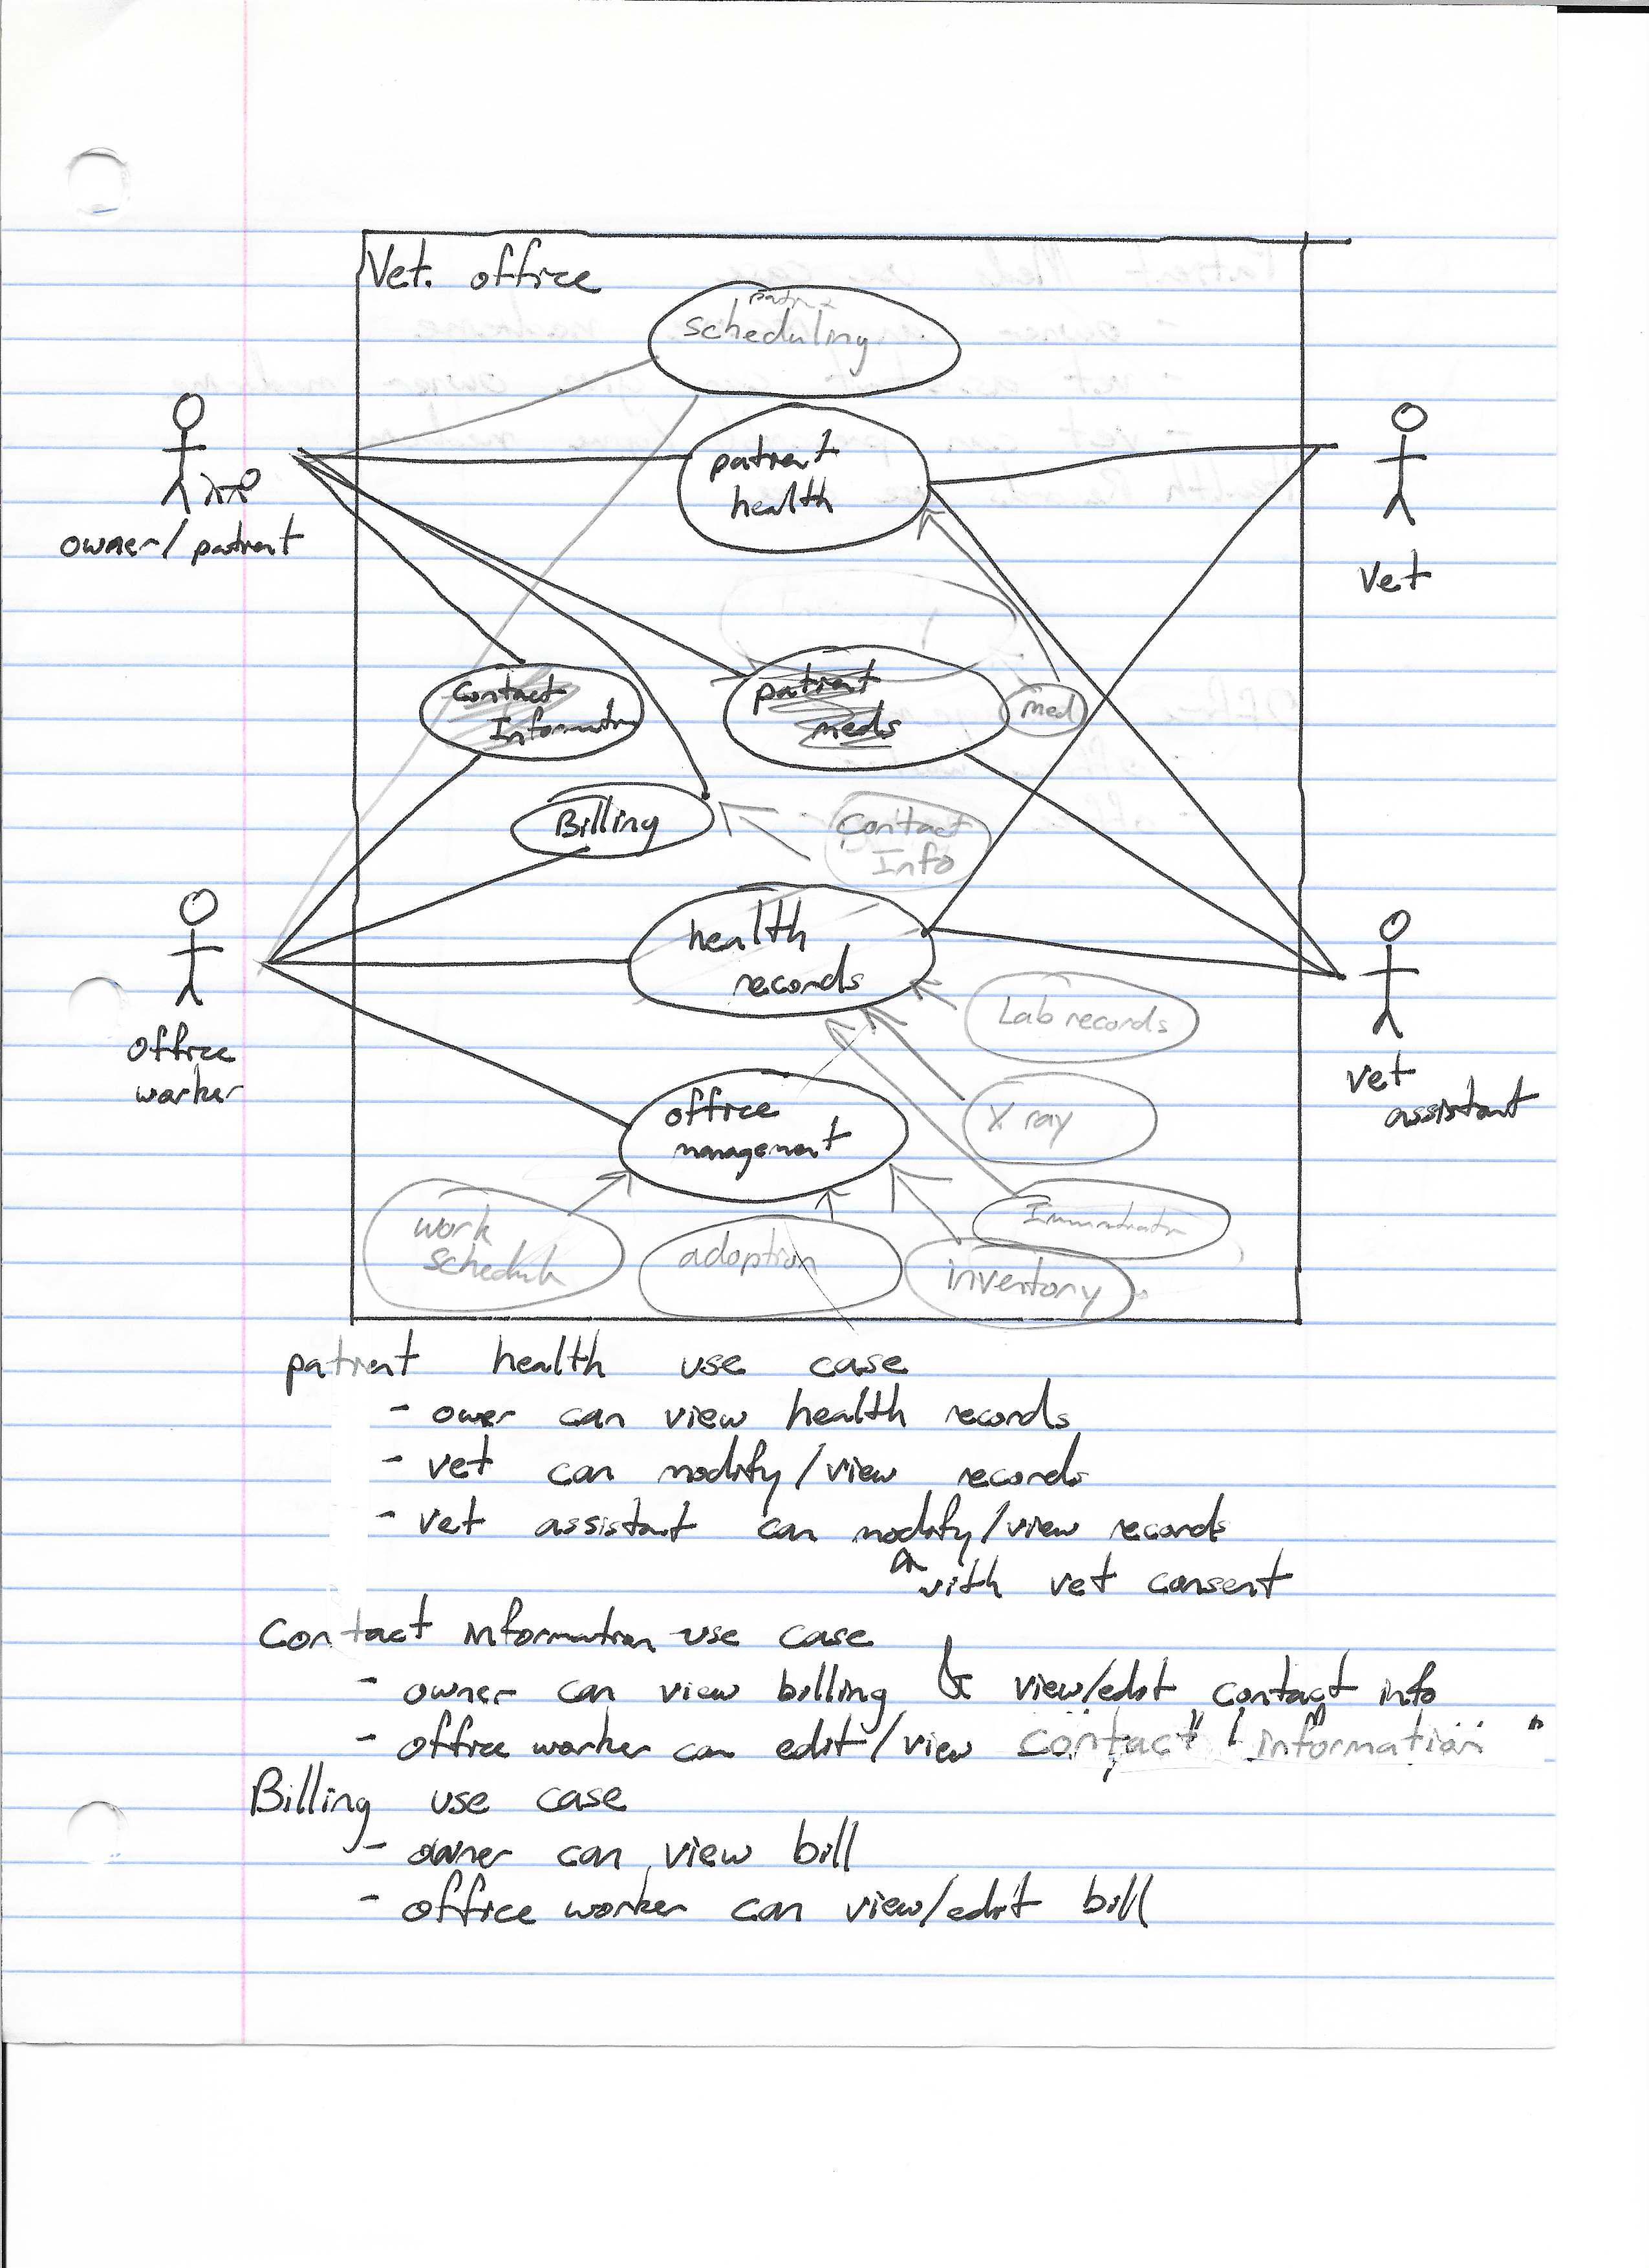 Vet. office
scheduling
patient
health
owner/ patient
Vet
Contact
Information
patient
meds
med
Billing
Contact
Info
health
records
Lab records
office
worker
vet
assistant
office
management
X ray
work
schedule
adoption
inventory
patient health use case
- ower can view health records
- vet can modify/view records
- vet assistant can modify/view records
^ with vet consent
Contact information use case
- owner can view billing & view/edit contact info
- office worker can edit/view contact information
Billing use case
- owner can view bill
- office worker can view/edit bill